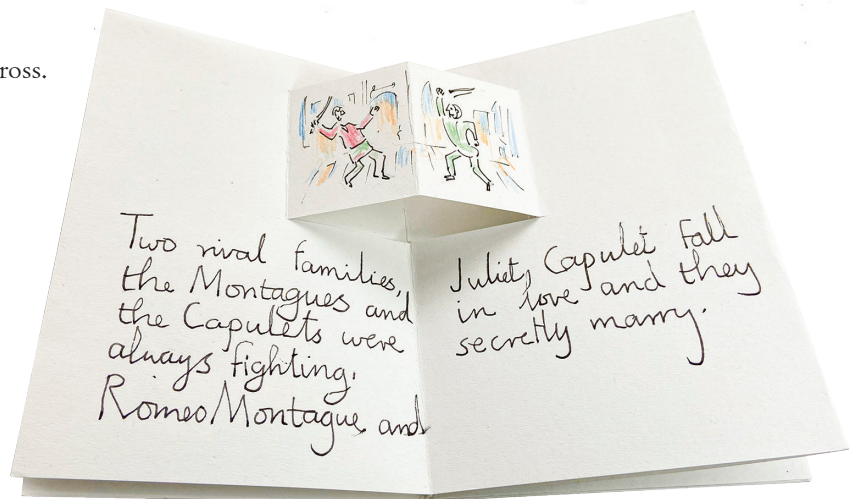 ross.
Two rival families,
the Montagues and
the Capulets were
always fighting.
Romeo Montague and
Juliet, Capulet fall
in love and they
secretly marry.